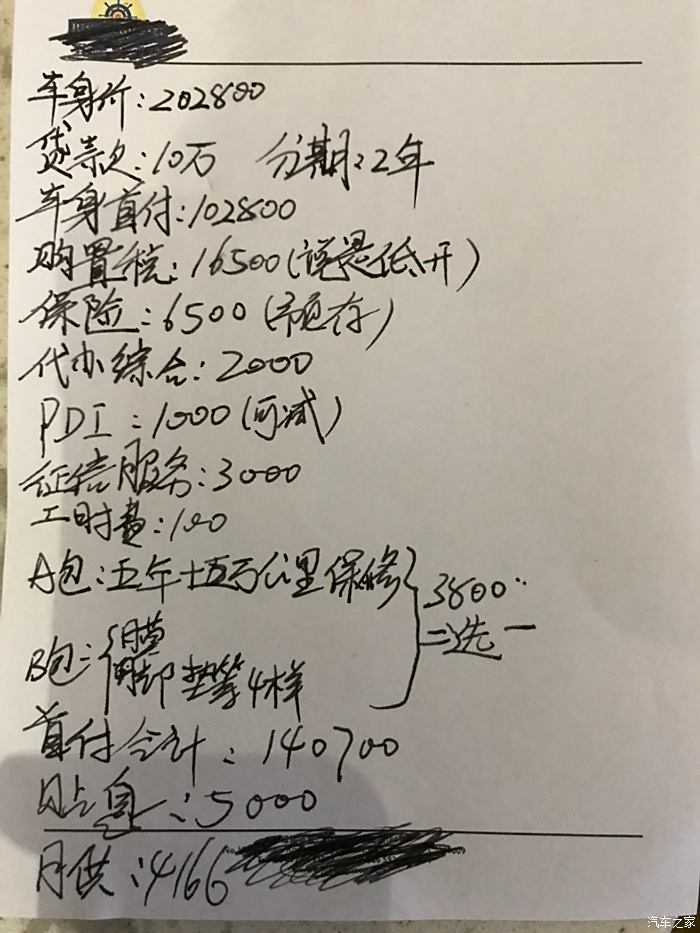 车身价:202800
贷款:10万 分期:2年
车身首付:102800
购置税:16500(低开)
保险:6500(预存)
代办综合:2000
PDI:1000(可减)
征信服务:3000
工时费:100
A包:五年十五万公里保修
3800
二选一
B包:膜
脚垫等4样
首付合计:140700
贴息:5000
月供:4166
汽车之家